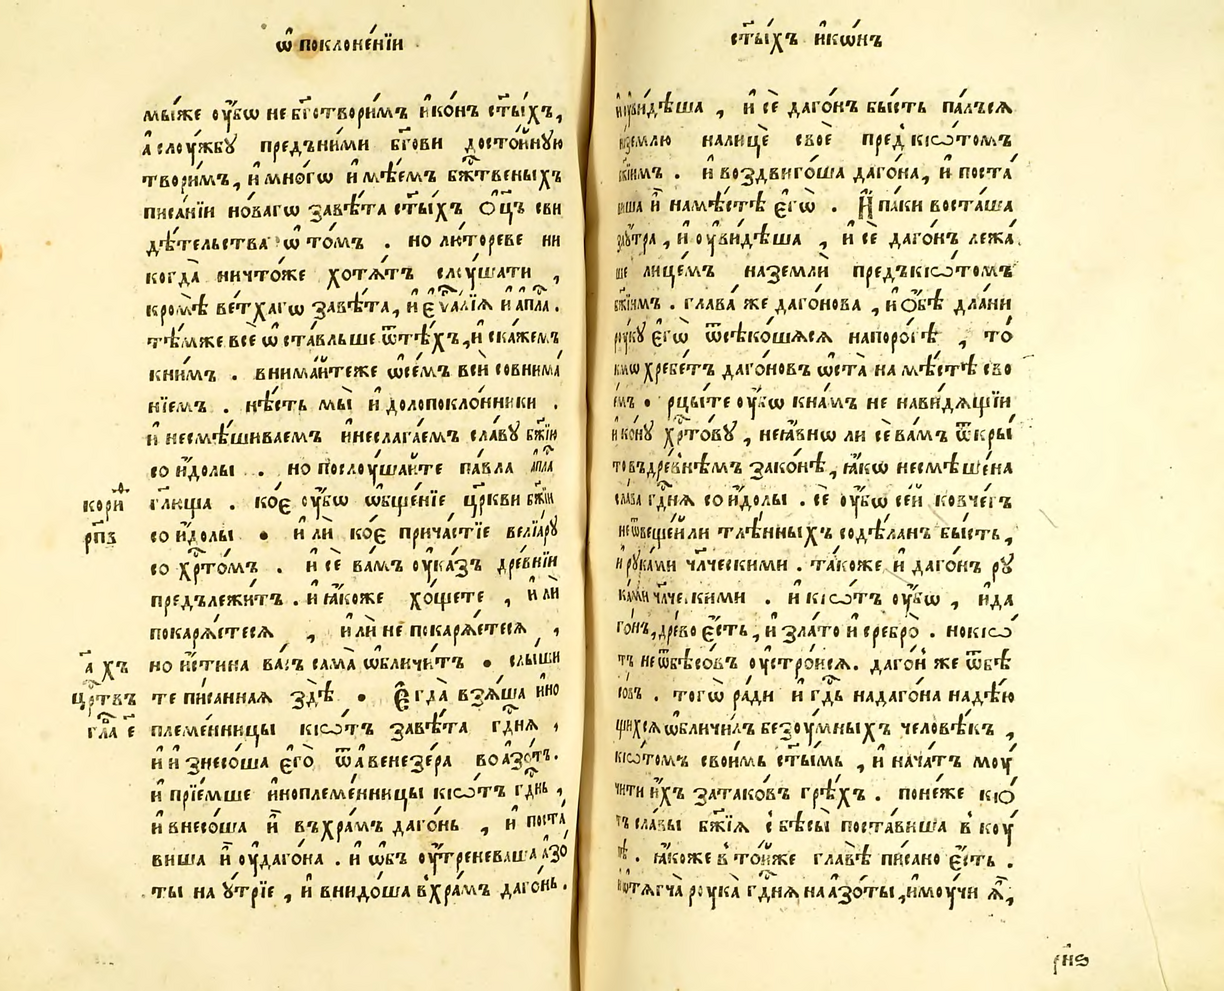 ѿ поклоне́нїи
мы́же ѹ҆́бѡ не бг҃отвори́мъ и҆ко́нъ ст҃ы́хъ,
а҆ слѹ́жбꙋ предъни́ми бг҃ови досто́йнꙋю
твори́мъ, и҆ мно́гѡ и҆мѣ́емъ бж҃твеныхъ
писа́нїи но́вагѡ завѣ́та ст҃ы́хъ ѻ҆ц҃ъ сви
дѣ́тельства ѡ҆ то́мъ . но лю́тореве ни
когда̀ ничто́же хотѧ́тъ слѹ́шати ,
кромѣ̀ ве́тхагѡ завѣ́та, и҆ є҆ѵа҃лїѧ и҆ а҆пл҃а .
тѣ́мже всѐ ѡ҆ста́вльше ѿтѣ́хъ, и҆ ска́жемъ
кни́мъ . внима́йтеже ѡ҆се́мъ всѝ совнима́
нїемъ . нѣ́сть мы̀ и҆долопокло́нники .
и҆ несмѣ́шиваемъ и҆неслага́емъ сла́вꙋ бж҃їи
со и҆́долы . но послѹ́шайте па́вла а҆пл҃а
кори́ѳ гл҃юща . ко́є ѹ҆́бѡ ѡ҆бще́нїе цр҃кви бж҃їи
рпз со и҆́долы • и҆лѝ ко́є прича́стїе велїа́рꙋ
со хр҃то́мъ . и҆ сѐ ва́мъ ѹ҆ка́зъ дре́внїи
предълежи́тъ . и҆ ꙗ҆́коже хо́щете , и҆лѝ
покарѧ́етесѧ , и҆лѝ не покарѧ́етесѧ ,
а҃ хъ но и҆́стина ва́съ сама̀ ѡ҆бличи́тъ • слы́ши
цр҃твъ те пи́санная здѣ̀ • Є҆гда̀ взѧ́ша и҆но
гла є҃ племе́нницы кїѡ́тъ завѣ́та гд҃нѧ ,
и҆ и҆знесо́ша є҆го̀ ѿ а҆венезе́ра во а҆зо́тъ.
и҆ прїе́мше и҆ноплеме́нницы кїѡ́тъ гд҃нь ,
и҆ внесо́ша и҆̀ въхра́мъ даго́нь , и҆ поста́
виша и҆̀ ѹ҆даго́на . и҆ ѡ҆бъ ѹ҆́треневаша а҆зо́
ты на ꙋ҆́трїе , и҆ внидо́ша вхра́мъ даго́нь .
ст҃ы́хъ и҆кѡ́нъ
и҆ ѹ҆ви́дѣша , и҆ сѐ даго́нъ бы́сть па́лъсѧ
на́землю налицѐ своѐ пред̾ кїѡ́томъ
бж҃їимъ . и҆ воздвиго́ша даго́на, и҆ поста́
виша и҆̀ намѣ́стѣ є҆гѡ̀ . И҆ па́ки воста́ша
заѹ́тра , и҆ ѹ҆ви́дѣша , и҆ сѐ даго́нъ лежа́
ше лице́мъ наземлѝ предъкїѡ́томъ
бж҃їимъ . глава́ же даго́нова , и҆ ѻ҆́бѣ дла́ни
рꙋкꙋ̀ є҆гѡ̀ ѿсѣко́шѧсѧ напоро́гѣ , то́
кмѡ хребе́тъ даго́новъ ѡ҆ста̀ на мѣ́стѣ сво
е́мъ • рцы́те ѹ҆́бѡ кна́мъ не нави́дѧщїи
и҆ко́нꙋ хр҃то́вꙋ , неꙗ҆́внѡ ли сѐ ва́мъ ѿкры́
товъдре́внѣмъ зако́нѣ, ꙗ҆́кѡ несмѣше́на
сла́ва гд҃нѧ со и҆́долы . сѐ ѹ҆́бѡ се́й ковче́гъ
не ѿвеще́й ли тлѣ́нныхъ содѣ́ланъ бы́сть ,
и҆ рꙋка́ми чл҃ческими . та́коже и҆ даго́нъ рꙋ
ка́ми чл҃ческими . и҆ кїѡ́тъ ѹ҆́бѡ , и҆да
го́нъ, дре́во є҆́сть , и҆ зла́то и҆ сребро̀ . нокїѡ́
тъ не ѡ҆бѣсо́въ ѹ҆стро́исѧ. даго́н же ѿбѣ
со́въ . тогѡ̀ ра́ди и҆ гд҃ь надаго́на надѣ́ю
щихсѧ ѡ҆бличи́лъ безѹ́мныхъ человѣ́къ ,
кїѡ́томъ свои́мъ ст҃ы́мь , и҆ нача́тъ мѹ́
чити и҆́хъ затако́въ грѣ́хъ . поне́же кїѻ́
тъ сла́вы бж҃їѧ с̾ бѣ́сы поста́виша в̾ кѹ́
пѣ . ꙗ҆́коже в̾ то́йже гла́вѣ пи́сано є҆́сть .
и҆ ѡ҆тѧгча̀ рѹка̀ гд҃нѧ на а҆зо́ты, и҆мѹ́чи ѧ҆̀,
рн҃ѕ